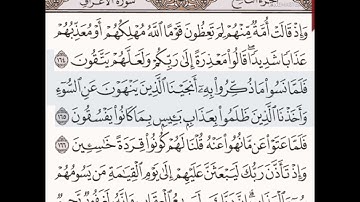 سورة الأعراف الجزء التاسع
وَإِذْ قَالَتْ أُمَّةٌ مِّنْهُمْ لِمَ تَعِظُونَ قَوْمًا ٱللَّهُ مُهْلِكُهُمْ أَوْ مُعَذِّبُهُمْ
عَذَابًا شَدِيدًا ۖ قَالُوا۟ مَعْذِرَةً إِلَىٰ رَبِّكُمْ وَلَعَلَّهُمْ يَتَّقُونَ ١٦٤
فَلَمَّا نَسُوا۟ مَا ذُكِّرُوا۟ بِهِۦٓ أَنجَيْنَا ٱلَّذِينَ يَنْهَوْنَ عَنِ ٱلسُّوٓءِ
وَأَخَذْنَا ٱلَّذِينَ ظَلَمُوا۟ بِعَذَابٍۭ بَـِٔيسٍۭ بِمَا كَانُوا۟ يَفْسُقُونَ ١٦٥
فَلَمَّا عَتَوْا۟ عَن مَّا نُهُوا۟ عَنْهُ قُلْنَا لَهُمْ كُونُوا۟ قِرَدَةً خَـٰسِـِٔينَ ١٦٦
وَإِذْ تَأَذَّنَ رَبُّكَ لَيَبْعَثَنَّ عَلَيْهِمْ إِلَىٰ يَوْمِ ٱلْقِيَـٰمَةِ مَن يَسُومُهُمْ